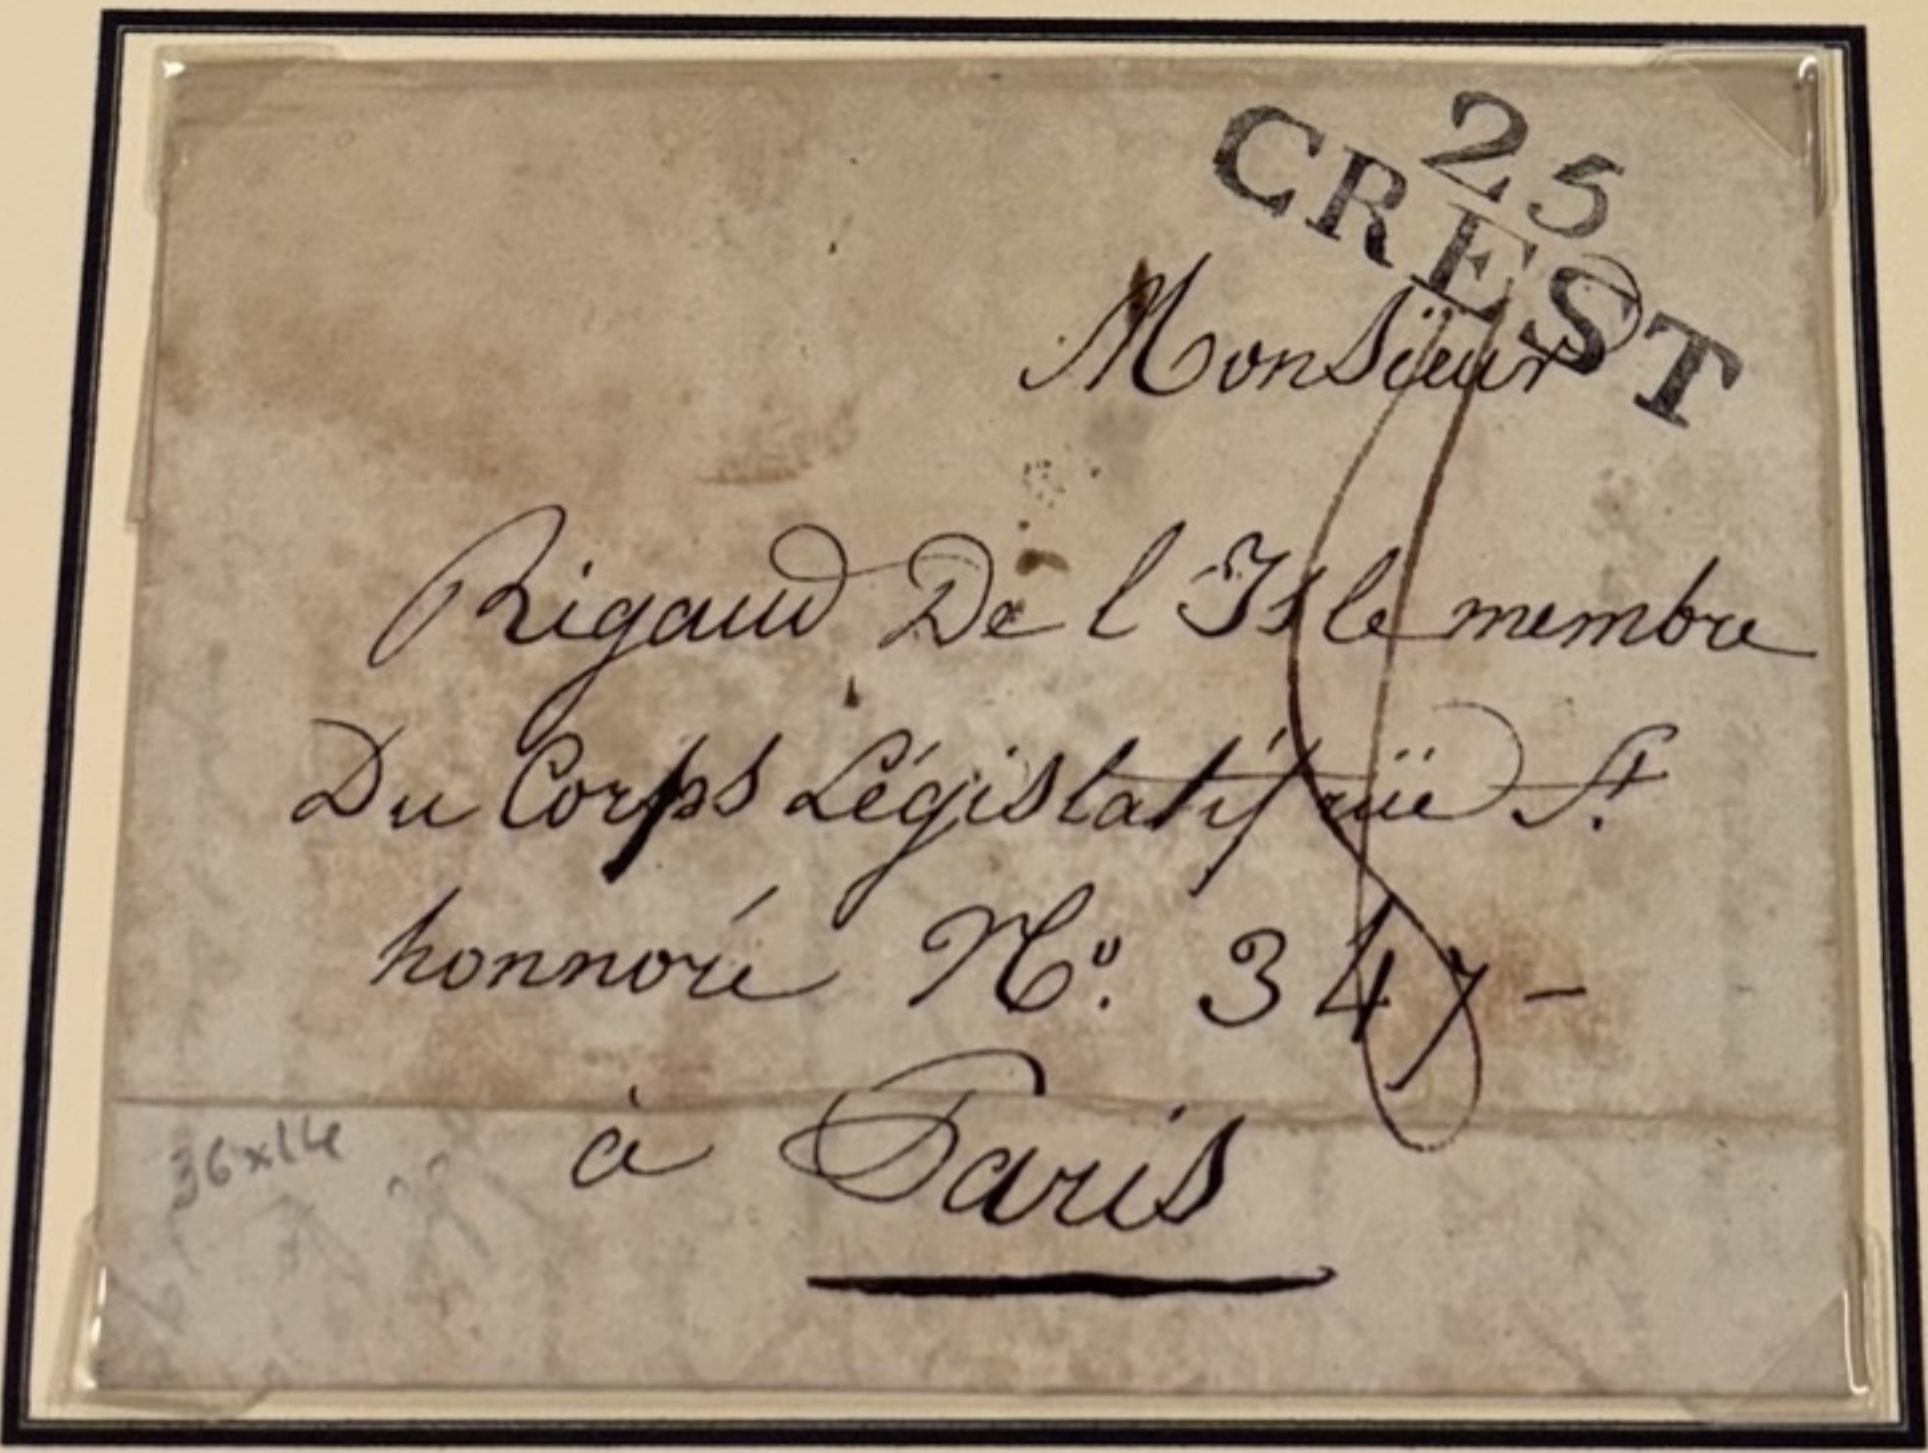 25
CREST
Monsieur
Rigaud De l Isle membre
Du Corps Législatif rüe St.
honnoré No. 347 -
à Paris
36x14